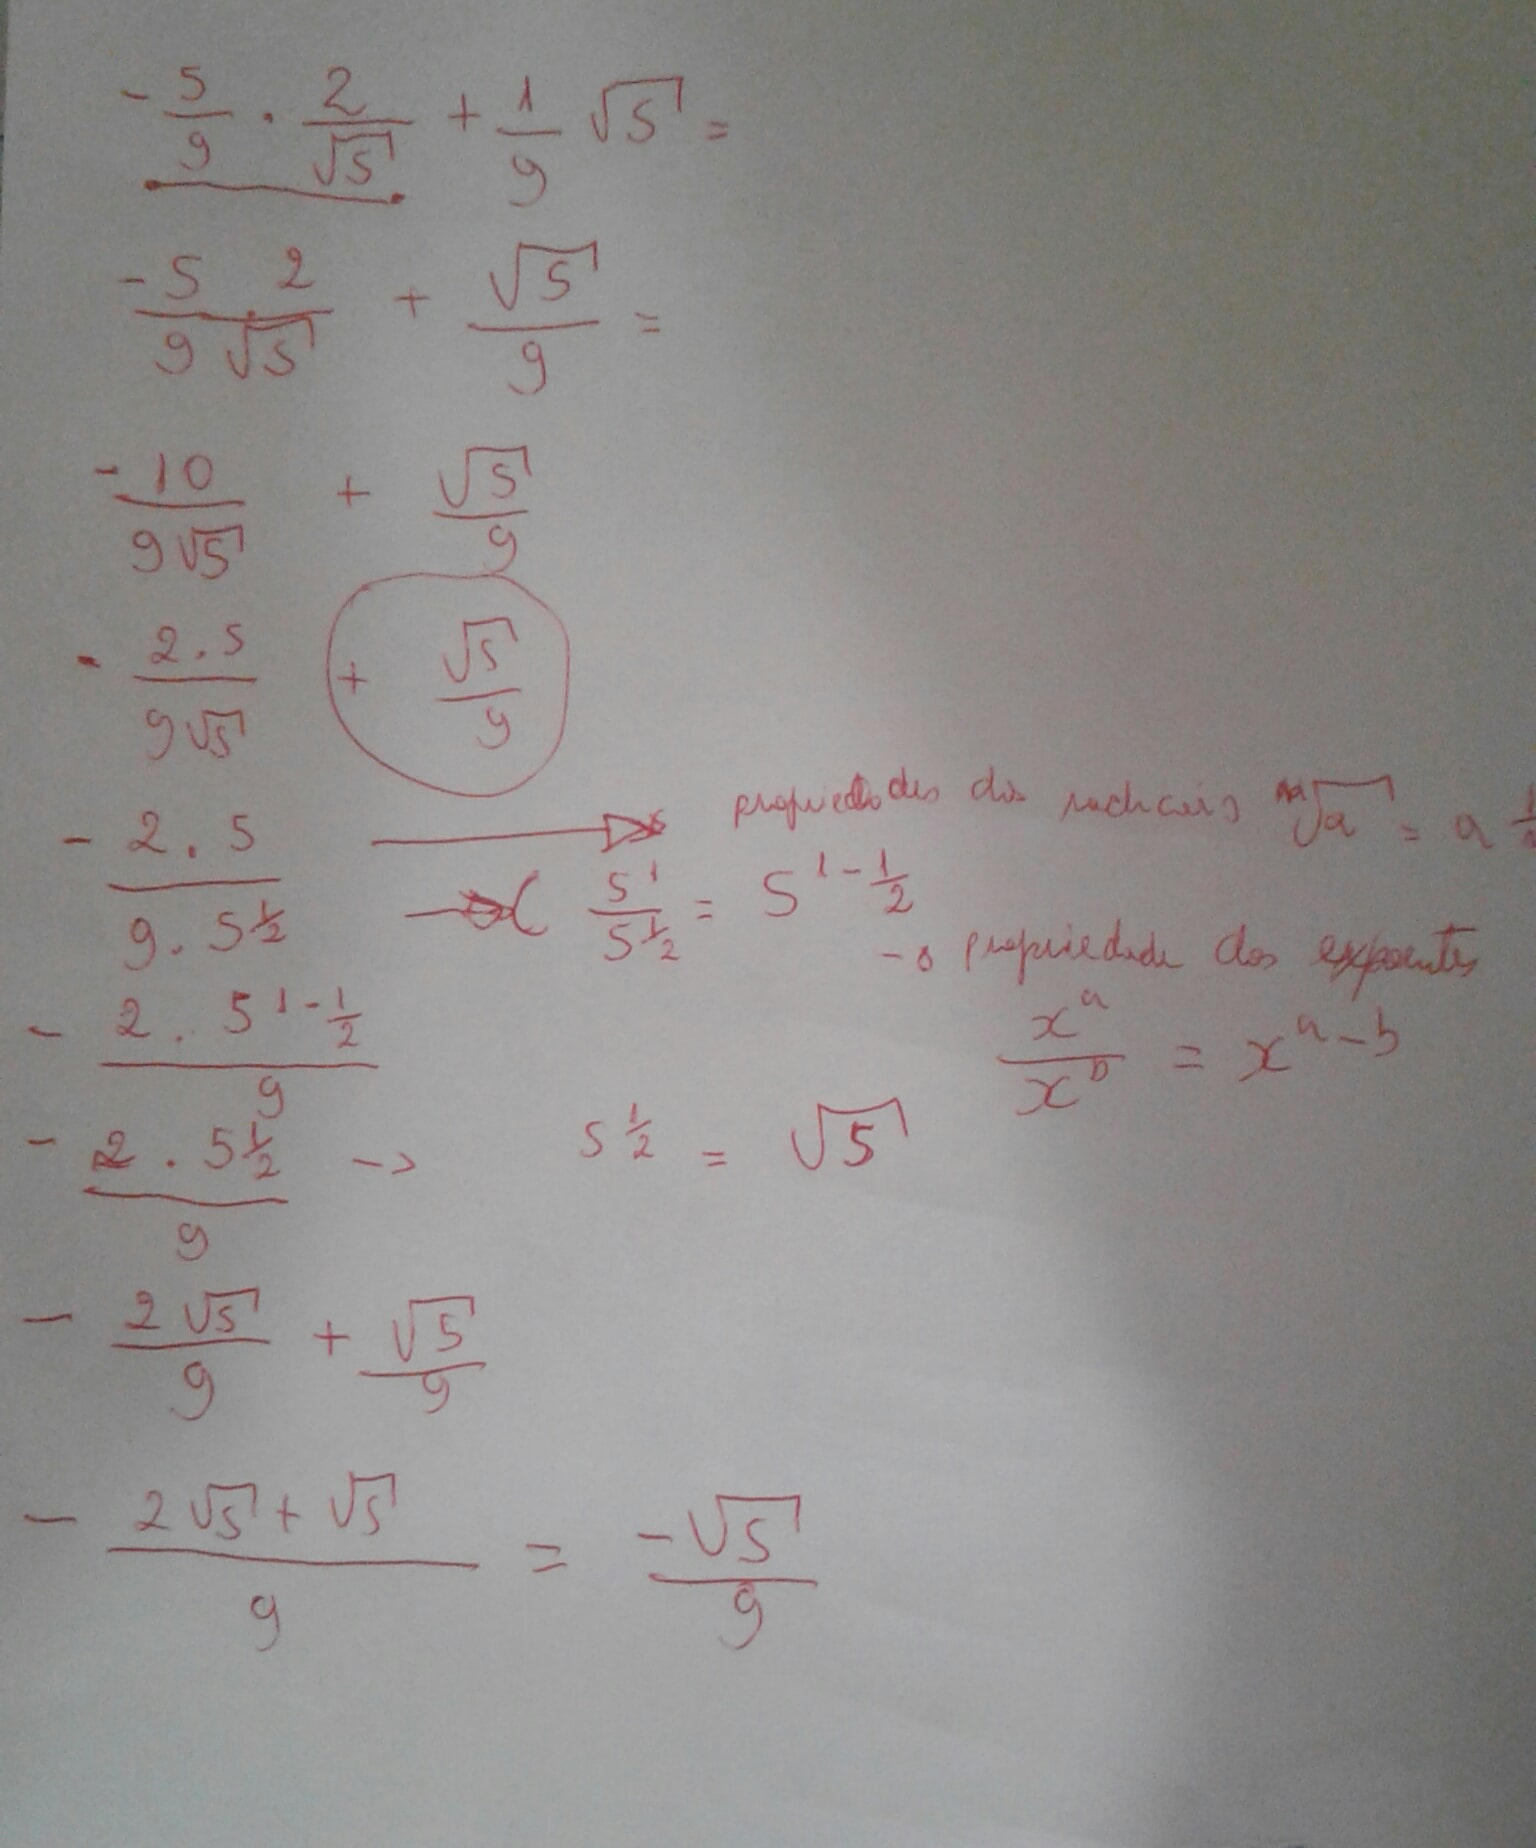 -5/9 · 2/√5 + 1/9 √5 =
-5 · 2 / 9√5 + √5/9 =
-10/9√5 + √5/9
- 2.5/9√5 + √5/9
- 2.5 / 9.5^½ → propriedades dos radicais ⁿ√a = a
→ ( 5^1/5^½ = 5^(1-½)
-o propriedade dos expoentes
x^a/x^b = x^(a-b)
- 2.5^(1-½) / 9
- 2.5^½ / 9 -> 5^½ = √5
- 2√5/9 + √5/9
- 2√5+√5 / 9 = -√5/9